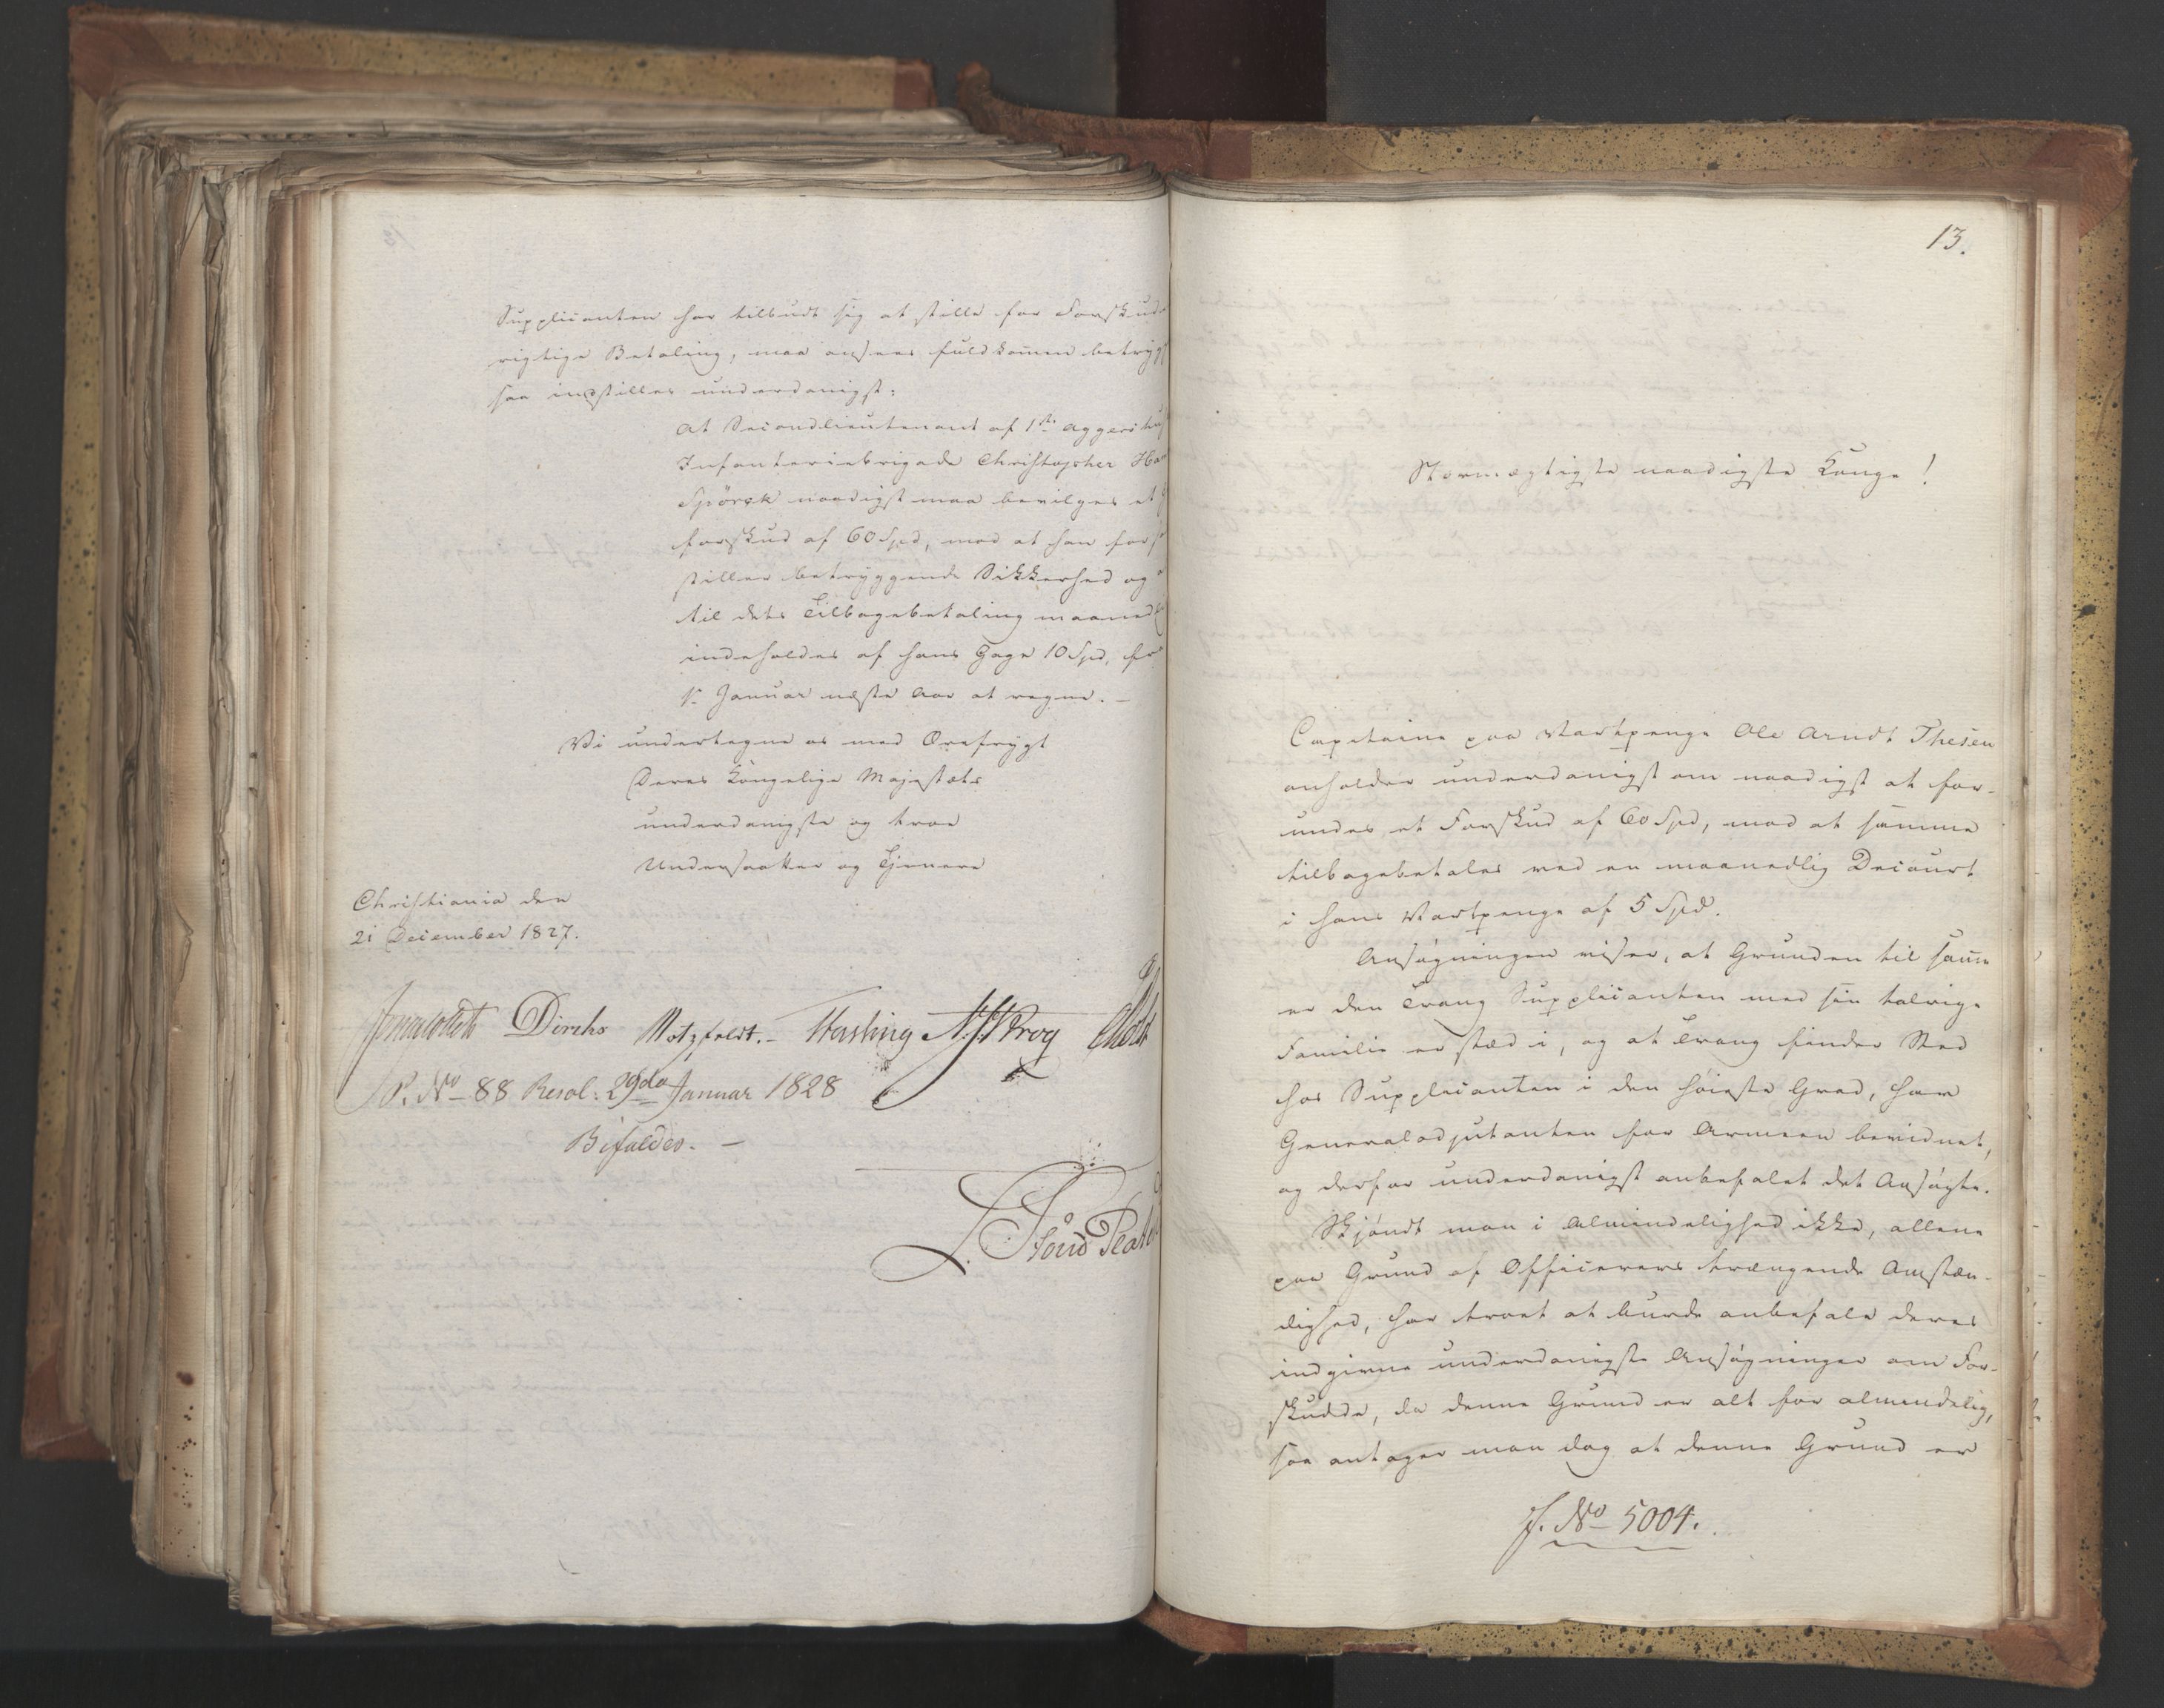 Supplicanten har tilbudt sig at stille for Forskud
rigtige Betaling, maa ansees fuldkommen betryg
saa indstilles underdanigst:
At Secondlieutenant af 1ste Aggershus
Infanteriebrigade Christopher
Spörck naadigst maa bevilges et
Forskud af 60 Spd, mod at han for
stiller betryggende Sikkerhed og
til dets Tilbagebetaling maaned
indeholdes af hans Gage 10 Spd, fra
1. Januar næste Aar at regne. –
Vi undertegne os med Ærefrygt
Deres Kongelige Majestæts
underdanigste og troe
Undersaatter og Tjenere
Christiania den
21 December 1827.
Diriks Motzfeldt. –
P. No 88 Resol: 29de Januar 1828
Bifaldes. –
13.
Stormægtigste naadigste Konge!
Capitaine paa Vartpenge Ole Arndt Thesen
anholder underdanigst om naadigst at for-
undes et Forskud af 60 Spd, mod at samme
tilbagebetales ved en maanedlig Decourt
i hans Vartpenge af 5 Spd.
Ansøgningen viser, at Grunden til samme
er den Trang Supplicanten med sin talrige
Familie er stæd i, og at Trang finder Sted
hos Supplicanten i den høieste Grad, har
Generaladjutanten for Armeen bevidnet,
og derfor underdanigst anbefalet det Ansøgte.
Skjøndt man i Almindelighed ikke, allene
paa Grund af Officerers trængende Omstæn-
dighed, har troet at burde anbefale deres
indgivne underdanigste Ansøgninger om For-
skudde, da denne Grund er alt for almindelig,
saa antager man dog at denne Grund er
J. No 5004.